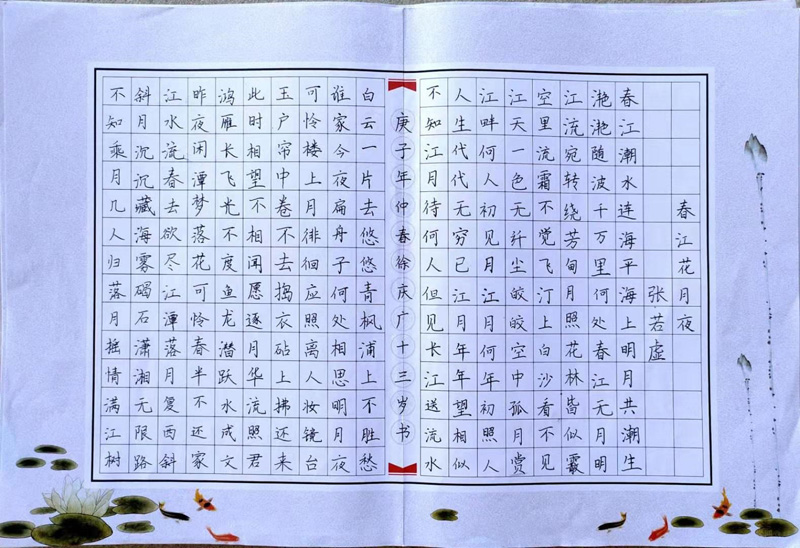 春江花月夜
张若虚
春江潮水连海平海上明月共潮生
滟滟随波千万里何处春江无月明
江流宛转绕芳甸月照花林皆似霰
空里流霜不觉飞汀上白沙看不见
江天一色无纤尘皎皎空中孤月赏
江畔何人初见月江月何年初照人
人生代代无穷已江月年年望相似
不知江月待何人但见长江送流水
庚子年仲春徐庆广十三岁书
白云一片去悠悠青枫浦上不胜愁
谁家今夜扁舟子何处相思明月夜
可怜楼上月徘徊应照离人妆镜台
玉户帘中卷不去捣衣砧上拂还来
此时相望不相闻愿逐月华流照君
鸿雁长飞光不度鱼龙潜跃水成文
昨夜闲潭梦落花可怜春半不还家
江水流春去欲尽江潭落月复西斜
斜月沉沉藏海雾碣石潇湘无限路
不知乘月几人归落月摇情满江树